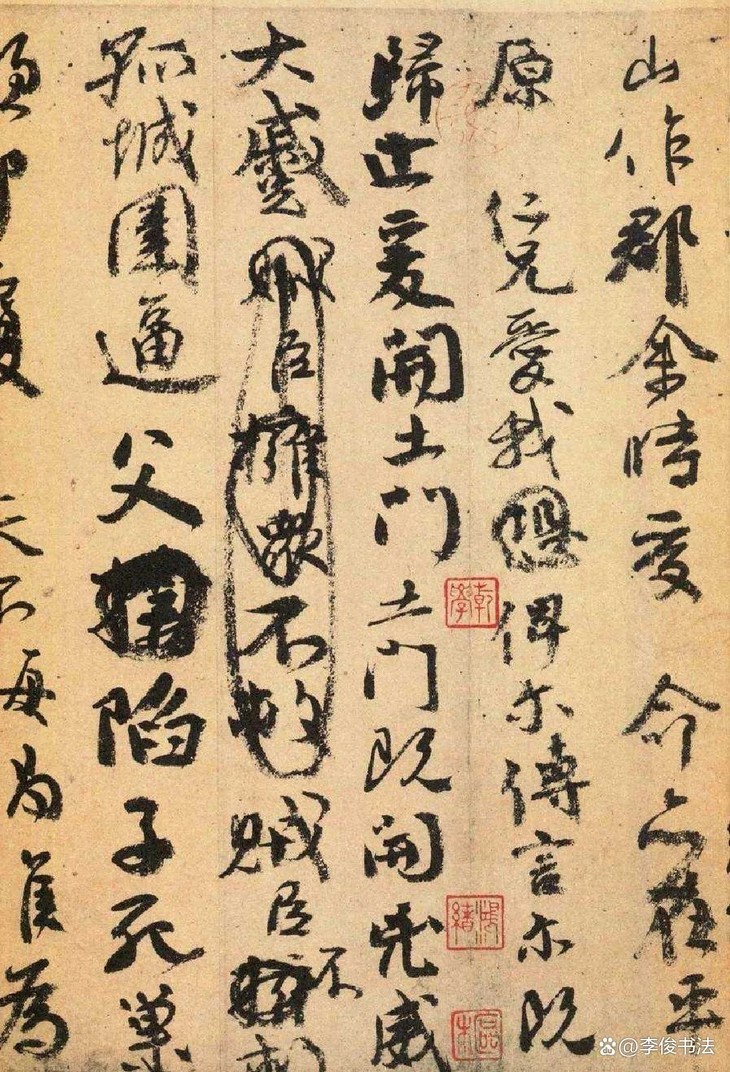 山作郡余時受命亦在平
原仁兄愛我俾尔傳言尔既
歸止爰開土門土門既開兇威
大蹙賊臣擁衆不救賊臣不救
孤城圍逼父陷子死巢
卵覆天不悔
乾學
鴻緒
@李俊书法